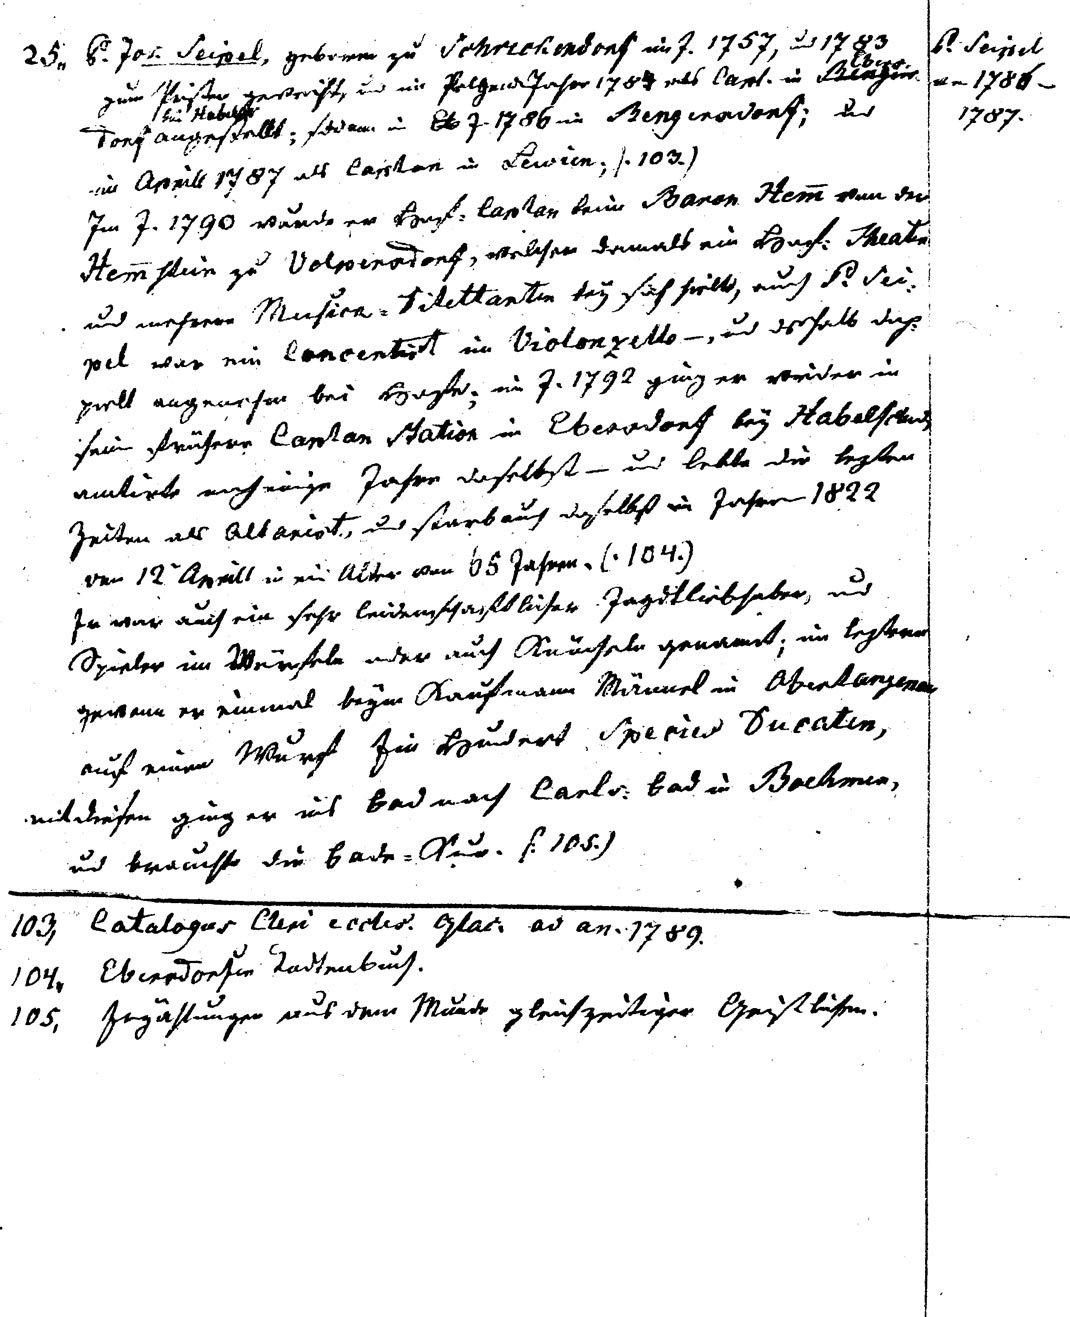 25. P. Jos. Seipel, geboren zu Schrekendorf im J. 1757, und 1783
P. Seipel
zum Priester geweiht, und im Jahr 1784 als Capl. in Ebers-
an 1786 –
1787.
bei Habelsch
dorf angestellt; sodann in J. 1786 in Bengersdorf; und
im Aprill 1787 als Caplan in Lewin; (. 103.)
Im J. 1790 wurde er Hof-Caplan beim Baron Hem̄ von der
Hem̄stein zu Volpersdorf, welcher damals ein Hof: Theater
und mehrere Musica-Dilettanten bey sich hielt, auch P. Sei-
pel war ein Concertist im Violonzello –, und deshalb dop-
pelt angenehm bei Hofe; im J. 1792 ging er wieder in
seine frühere Caplan Station in Ebersdorf bey Habelschwdt
amtirte noch einige Jahre daselbst – und lebte die lezten
Zeiten als Altarist, und starb auch daselbst im Jahre 1822
den 12t Aprill in ein Alter von 65 Jahren. (. 104.)
Er war auch ein sehr leidenschaftlicher Jagdliebhaber, und
Spieler im Würfeln oder auch Knöcheln genannt; im leztern
gewann er einmal beym Kaufmann Männel in Oberlangenau
auf einen Wurf Ein Hundert Species Ducaten,
mit diesen ging er ins Bad nach Carls-bad in Boehmen,
und brauchte die Bade-Kur. (. 105.)
103, Catalogus Cleri eccles. Glac. ad an. 1789.
104. Ebersdorfer Todtenbuch.
105, Erzählungen aus dem Munde gleichzeitiger Geistlichen.